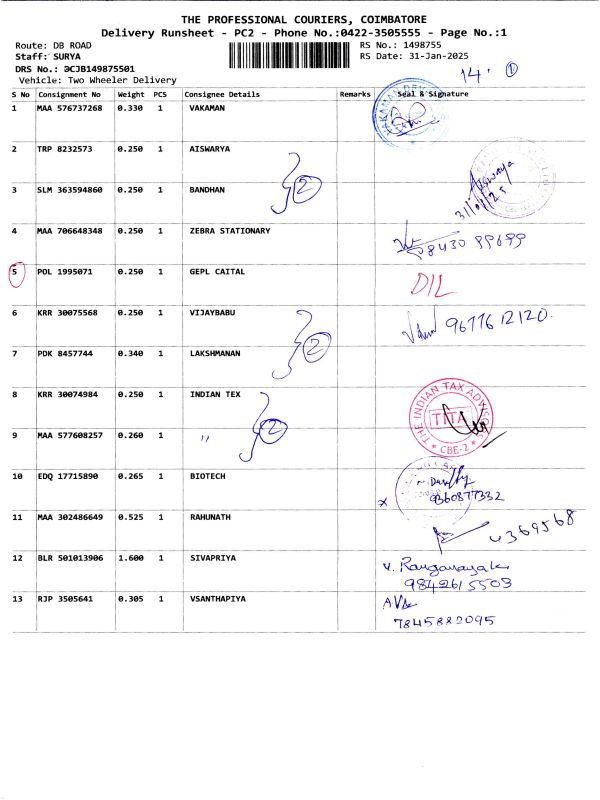 THE PROFESSIONAL COURIERS, COIMBATORE
Delivery Runsheet - PC2 - Phone No.:0422-3505555 - Page No.:1
Route: DB ROAD
RS No.: 1498755
Staff: SURYA
RS Date: 31-Jan-2025
DRS No.: DCJB149875501
14' 1
Vehicle: Two Wheeler Delivery
S No Consignment No Weight PCS Consignee Details Remarks Seal & Signature
1 MAA 576737268 0.330 1 VAKAMAN
2 TRP 8232573 0.250 1 AISWARYA
Aiswarya
31/01/25
2
3 SLM 363594860 0.250 1 BANDHAN
4 MAA 706648348 0.250 1 ZEBRA STATIONARY
8430 99699
5 POL 1995071 0.250 1 GEPL CAITAL
DIL
6 KRR 30075568 0.250 1 VIJAYBABU
9677612120
2
7 PDK 8457744 0.340 1 LAKSHMANAN
8 KRR 30074984 0.250 1 INDIAN TEX
THE INDIAN TAX ADVISORS
TITA
* CBE-2 *
2
9 MAA 577608257 0.260 1 〃
10 EDQ 17715890 0.265 1 BIOTECH
9360877332
11 MAA 302486649 0.525 1 RAHUNATH
4369568
12 BLR 501013906 1.600 1 SIVAPRIYA
V. Ranganayak
9842615503
13 RJP 3505641 0.305 1 VSANTHAPIYA
7845882095